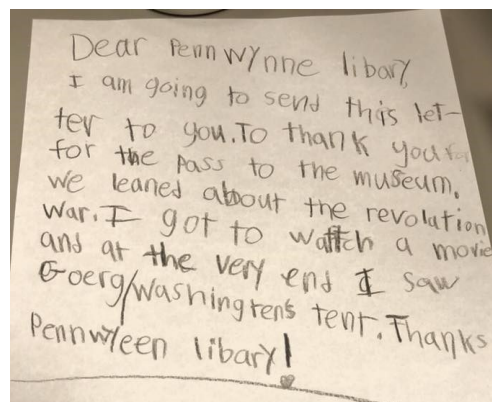 Dear Pennwynne libary,
I am going to send this let-
ter to you.To thank you for
for the pass to the museum.
we leaned about the revolution
war. I got to wattch a movie
and at the very end I saw
Goerg/washingtens tent. Thanks
Pennwyeen libary!